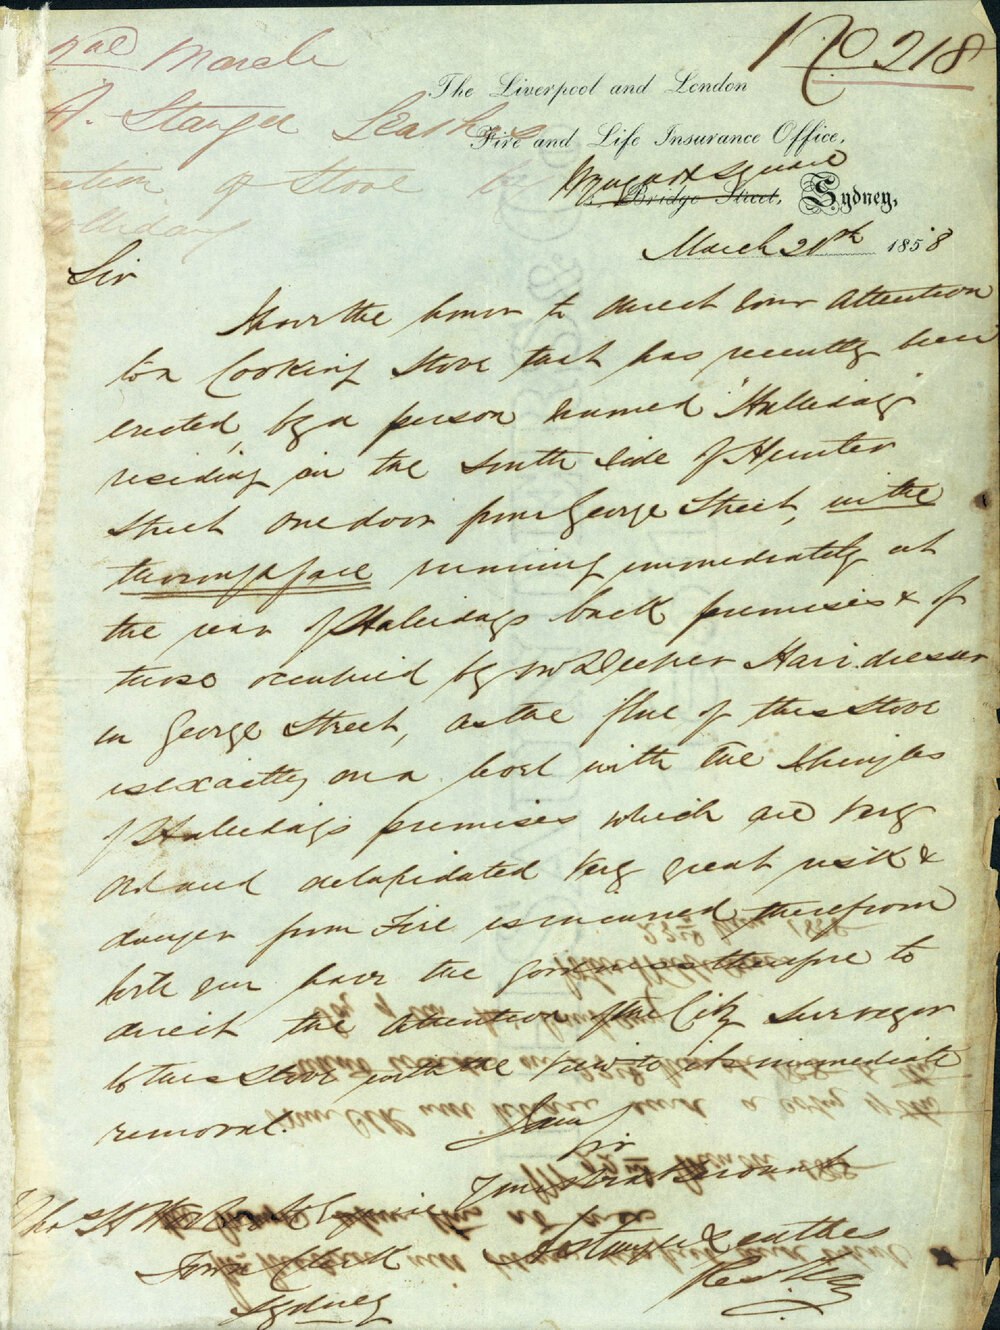 2nd March
A. Stanger Leathes
of Stove by
Holliday
No 218
The Liverpool and London
Fire and Life Insurance Office,
Wynyard Square
Bridge Street, Sydney,
March 20th 1858
Sir
I have the honor to direct your attention
to a Cooking Stove that has recently been
erected, by a person named "Halliday"
residing on the South Side of Hunter
Street one door from George Street, in the
thoroughfare running immediately at
the rear of Hallidays back premises & of
those occupied by Mr Hairdresser
in George Street, as the flue of this Stove
is exactly on a level with the Shingles
of Hallidays premises which are very
old and delapidated very great risk &
danger from Fire is incurred therefrom
will you have the goodness therefore to
direct the attention of the City Surveyor
to this Stove with the view to its immediate
removal.
I am
Sir
Your Obedt Servant
A Stanger Leathes
Res Secy
Chas H
Town Clerk
Sydney